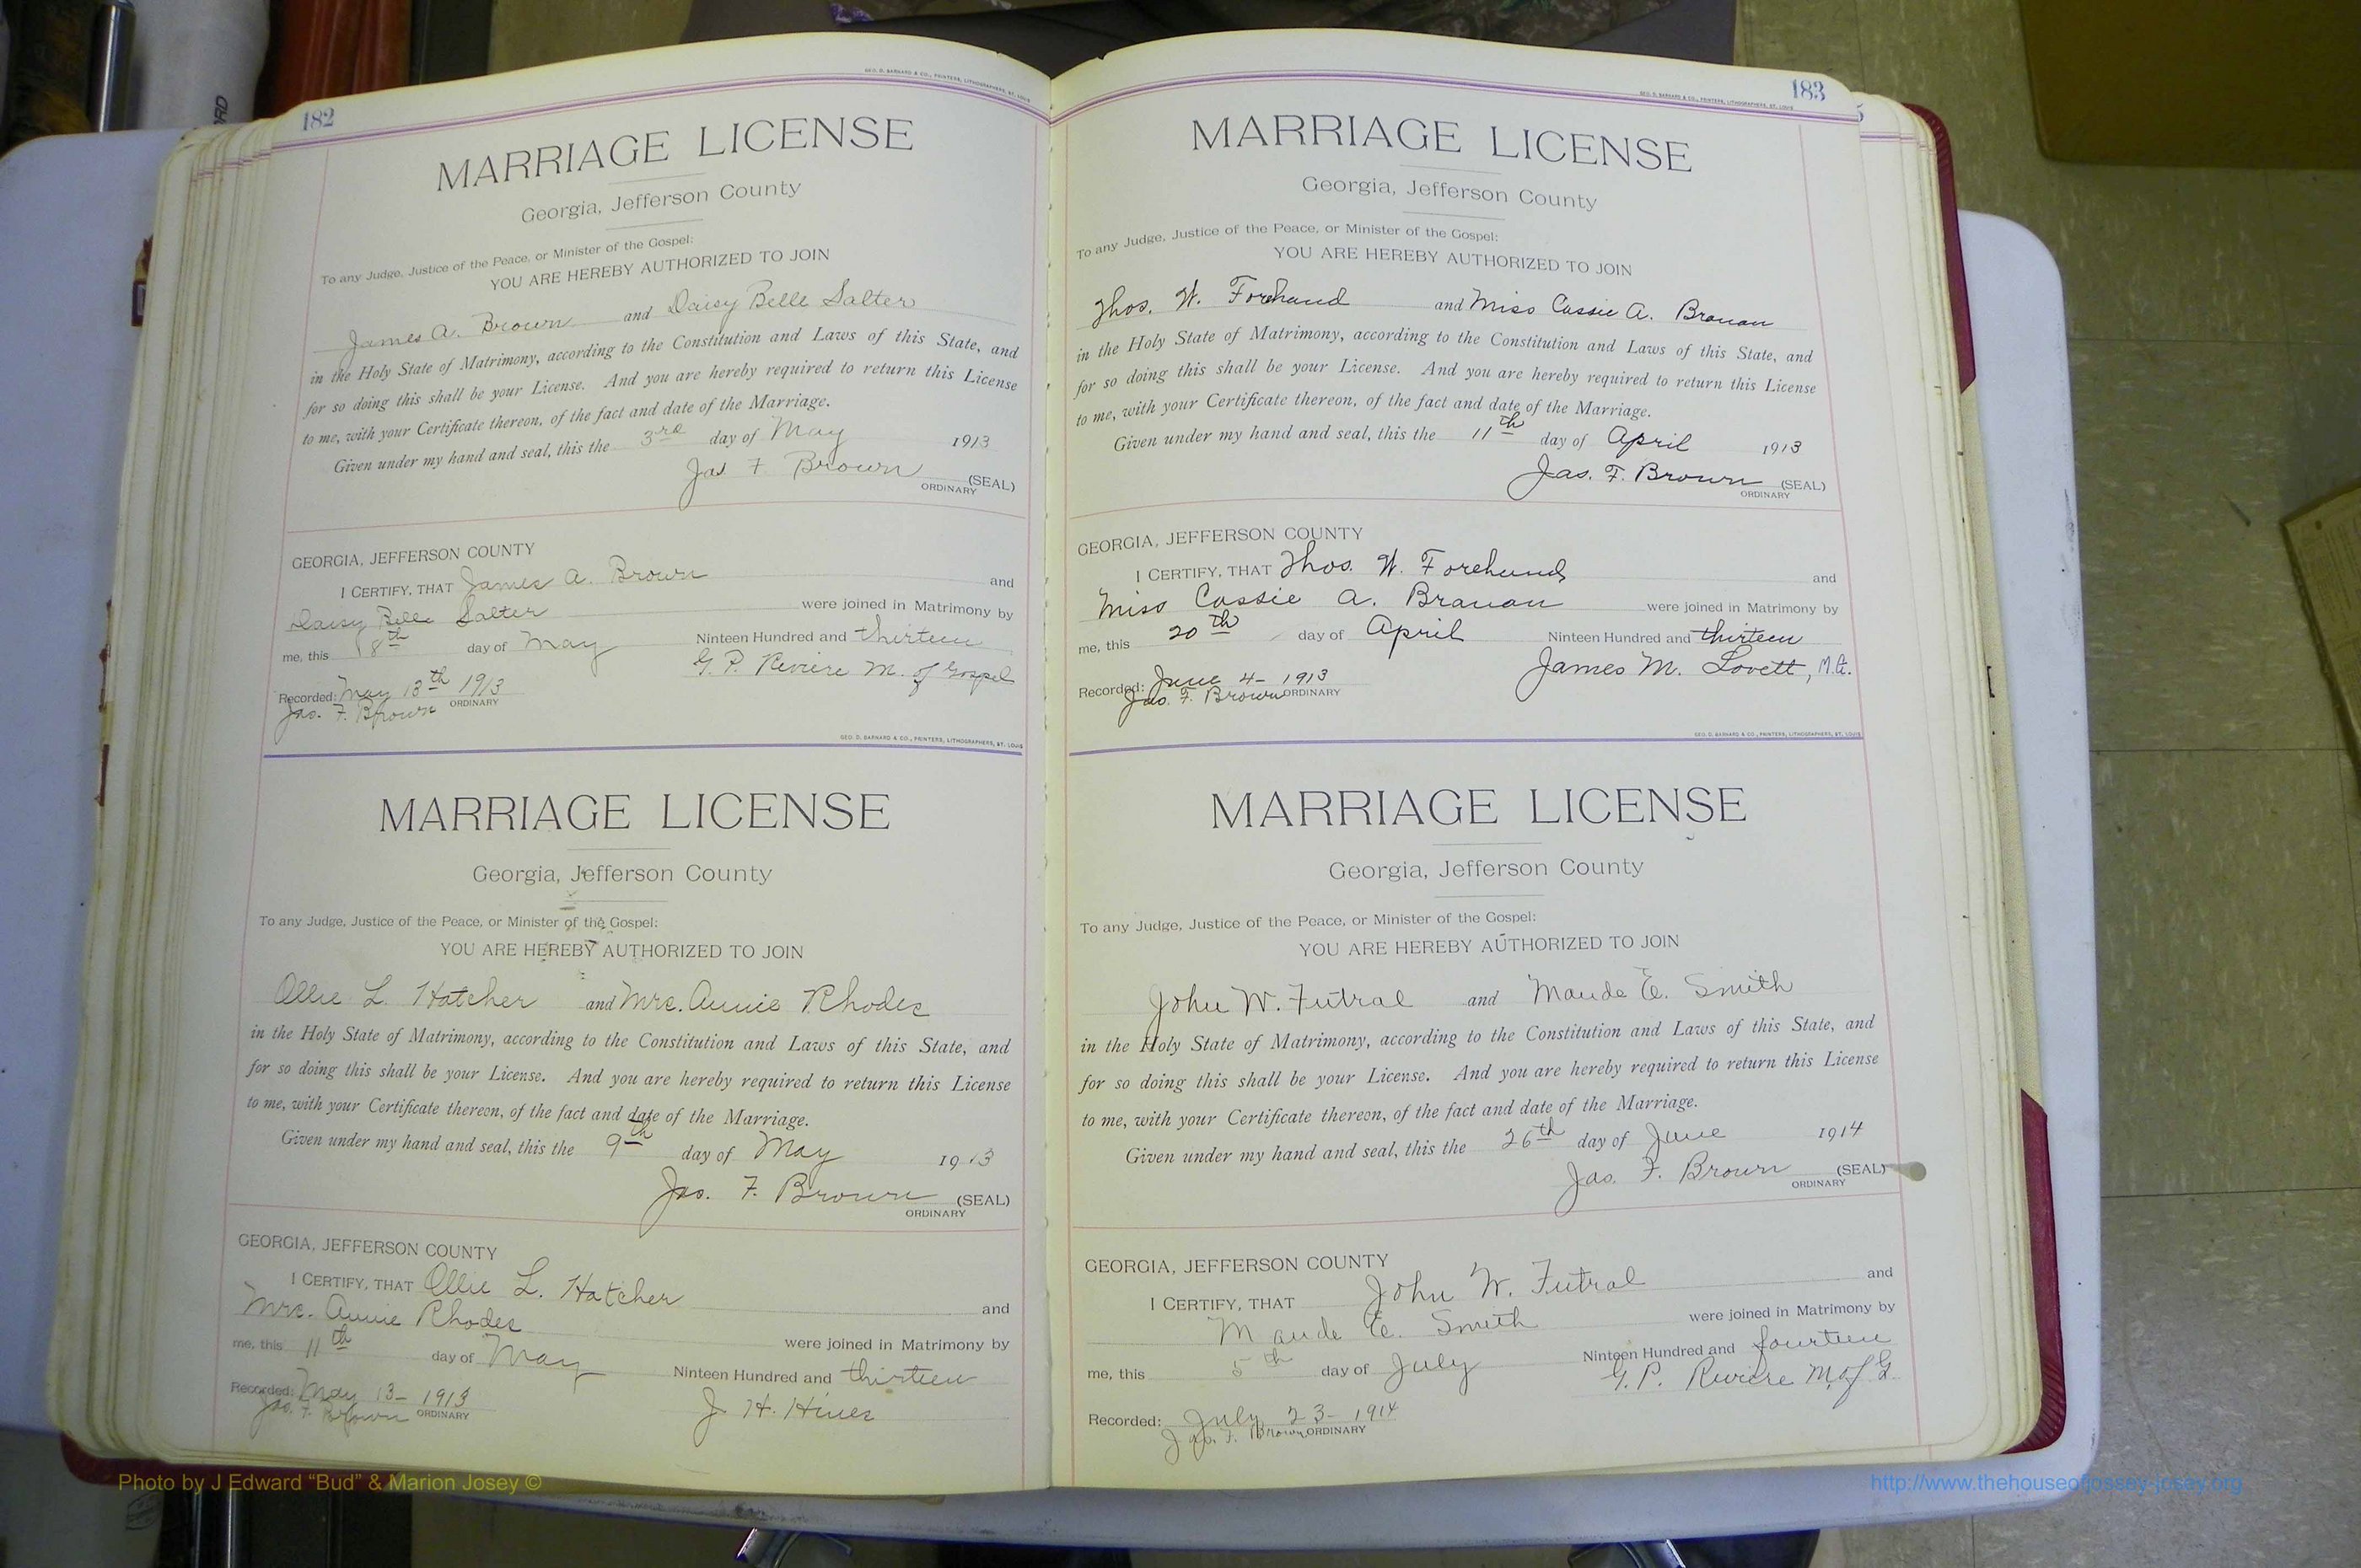 182
GEO. D. BARNARD & CO., PRINTERS, LITHOGRAPHERS, ST. LOUIS
MARRIAGE LICENSE
Georgia, Jefferson County
To any Judge, Justice of the Peace, or Minister of the Gospel:
YOU ARE HEREBY AUTHORIZED TO JOIN
James A. Brown and Daisy Belle Salter
in the Holy State of Matrimony, according to the Constitution and Laws of this State, and
for so doing this shall be your License. And you are hereby required to return this License
to me, with your Certificate thereon, of the fact and date of the Marriage.
Given under my hand and seal, this the 3rd day of May 1913
Jas F Brown (SEAL)
ORDINARY
GEORGIA, JEFFERSON COUNTY
I CERTIFY, THAT James A. Brown and
Daisy Belle Salter were joined in Matrimony by
me, this 8th day of May Ninteen Hundred and thirteen
G. P. Reviere M. of Gospel
Recorded: May 13th 1913
Jas. F. Brown ORDINARY
GEO. D. BARNARD & CO., PRINTERS, LITHOGRAPHERS, ST. LOUIS
MARRIAGE LICENSE
Georgia, Jefferson County
To any Judge, Justice of the Peace, or Minister of the Gospel:
YOU ARE HEREBY AUTHORIZED TO JOIN
Ollie L. Hatcher and Mrs. Annie Rhodes
in the Holy State of Matrimony, according to the Constitution and Laws of this State, and
for so doing this shall be your License. And you are hereby required to return this License
to me, with your Certificate thereon, of the fact and date of the Marriage.
Given under my hand and seal, this the 9th day of May 1913
Jas. F. Brown (SEAL)
ORDINARY
GEORGIA, JEFFERSON COUNTY
I CERTIFY, THAT Ollie L. Hatcher
Mrs. Annie Rhodes and
me, this 11th day of May were joined in Matrimony by
Ninteen Hundred and thirteen
Recorded: May 13- 1913
Jas. F. Brown ORDINARY
J. H. Hines
183
GEO. D. BARNARD & CO., PRINTERS, LITHOGRAPHERS, ST. LOUIS
MARRIAGE LICENSE
Georgia, Jefferson County
To any Judge, Justice of the Peace, or Minister of the Gospel:
YOU ARE HEREBY AUTHORIZED TO JOIN
Thos. W. Forehand and Miss Cassie A. Branan
in the Holy State of Matrimony, according to the Constitution and Laws of this State, and
for so doing this shall be your License. And you are hereby required to return this License
to me, with your Certificate thereon, of the fact and date of the Marriage.
Given under my hand and seal, this the 11th day of April 1913
Jas. F. Brown (SEAL)
ORDINARY
GEORGIA, JEFFERSON COUNTY
I CERTIFY, THAT Thos. W. Forehand and
Miss Cassie A. Branan were joined in Matrimony by
me, this 20th day of April Ninteen Hundred and thirteen
James M. Lovett, M.G.
Recorded: June 4- 1913
Jas. F. Brown ORDINARY
GEO. D. BARNARD & CO., PRINTERS, LITHOGRAPHERS, ST. LOUIS
MARRIAGE LICENSE
Georgia, Jefferson County
To any Judge, Justice of the Peace, or Minister of the Gospel:
YOU ARE HEREBY AUTHORIZED TO JOIN
John W. Futral and Maude E. Smith
in the Holy State of Matrimony, according to the Constitution and Laws of this State, and
for so doing this shall be your License. And you are hereby required to return this License
to me, with your Certificate thereon, of the fact and date of the Marriage.
Given under my hand and seal, this the 26th day of June 1914
Jas. F. Brown (SEAL)
ORDINARY
GEORGIA, JEFFERSON COUNTY
I CERTIFY, THAT John W. Futral and
Maude E. Smith were joined in Matrimony by
me, this 5th day of July Ninteen Hundred and fourteen
G. P. Reviere M. of G.
Recorded: July 23- 1914
Jas. F. Brown ORDINARY
Photo by J Edward “Bud” & Marion Josey ©
http://www.thehouseofjossey-josey.org